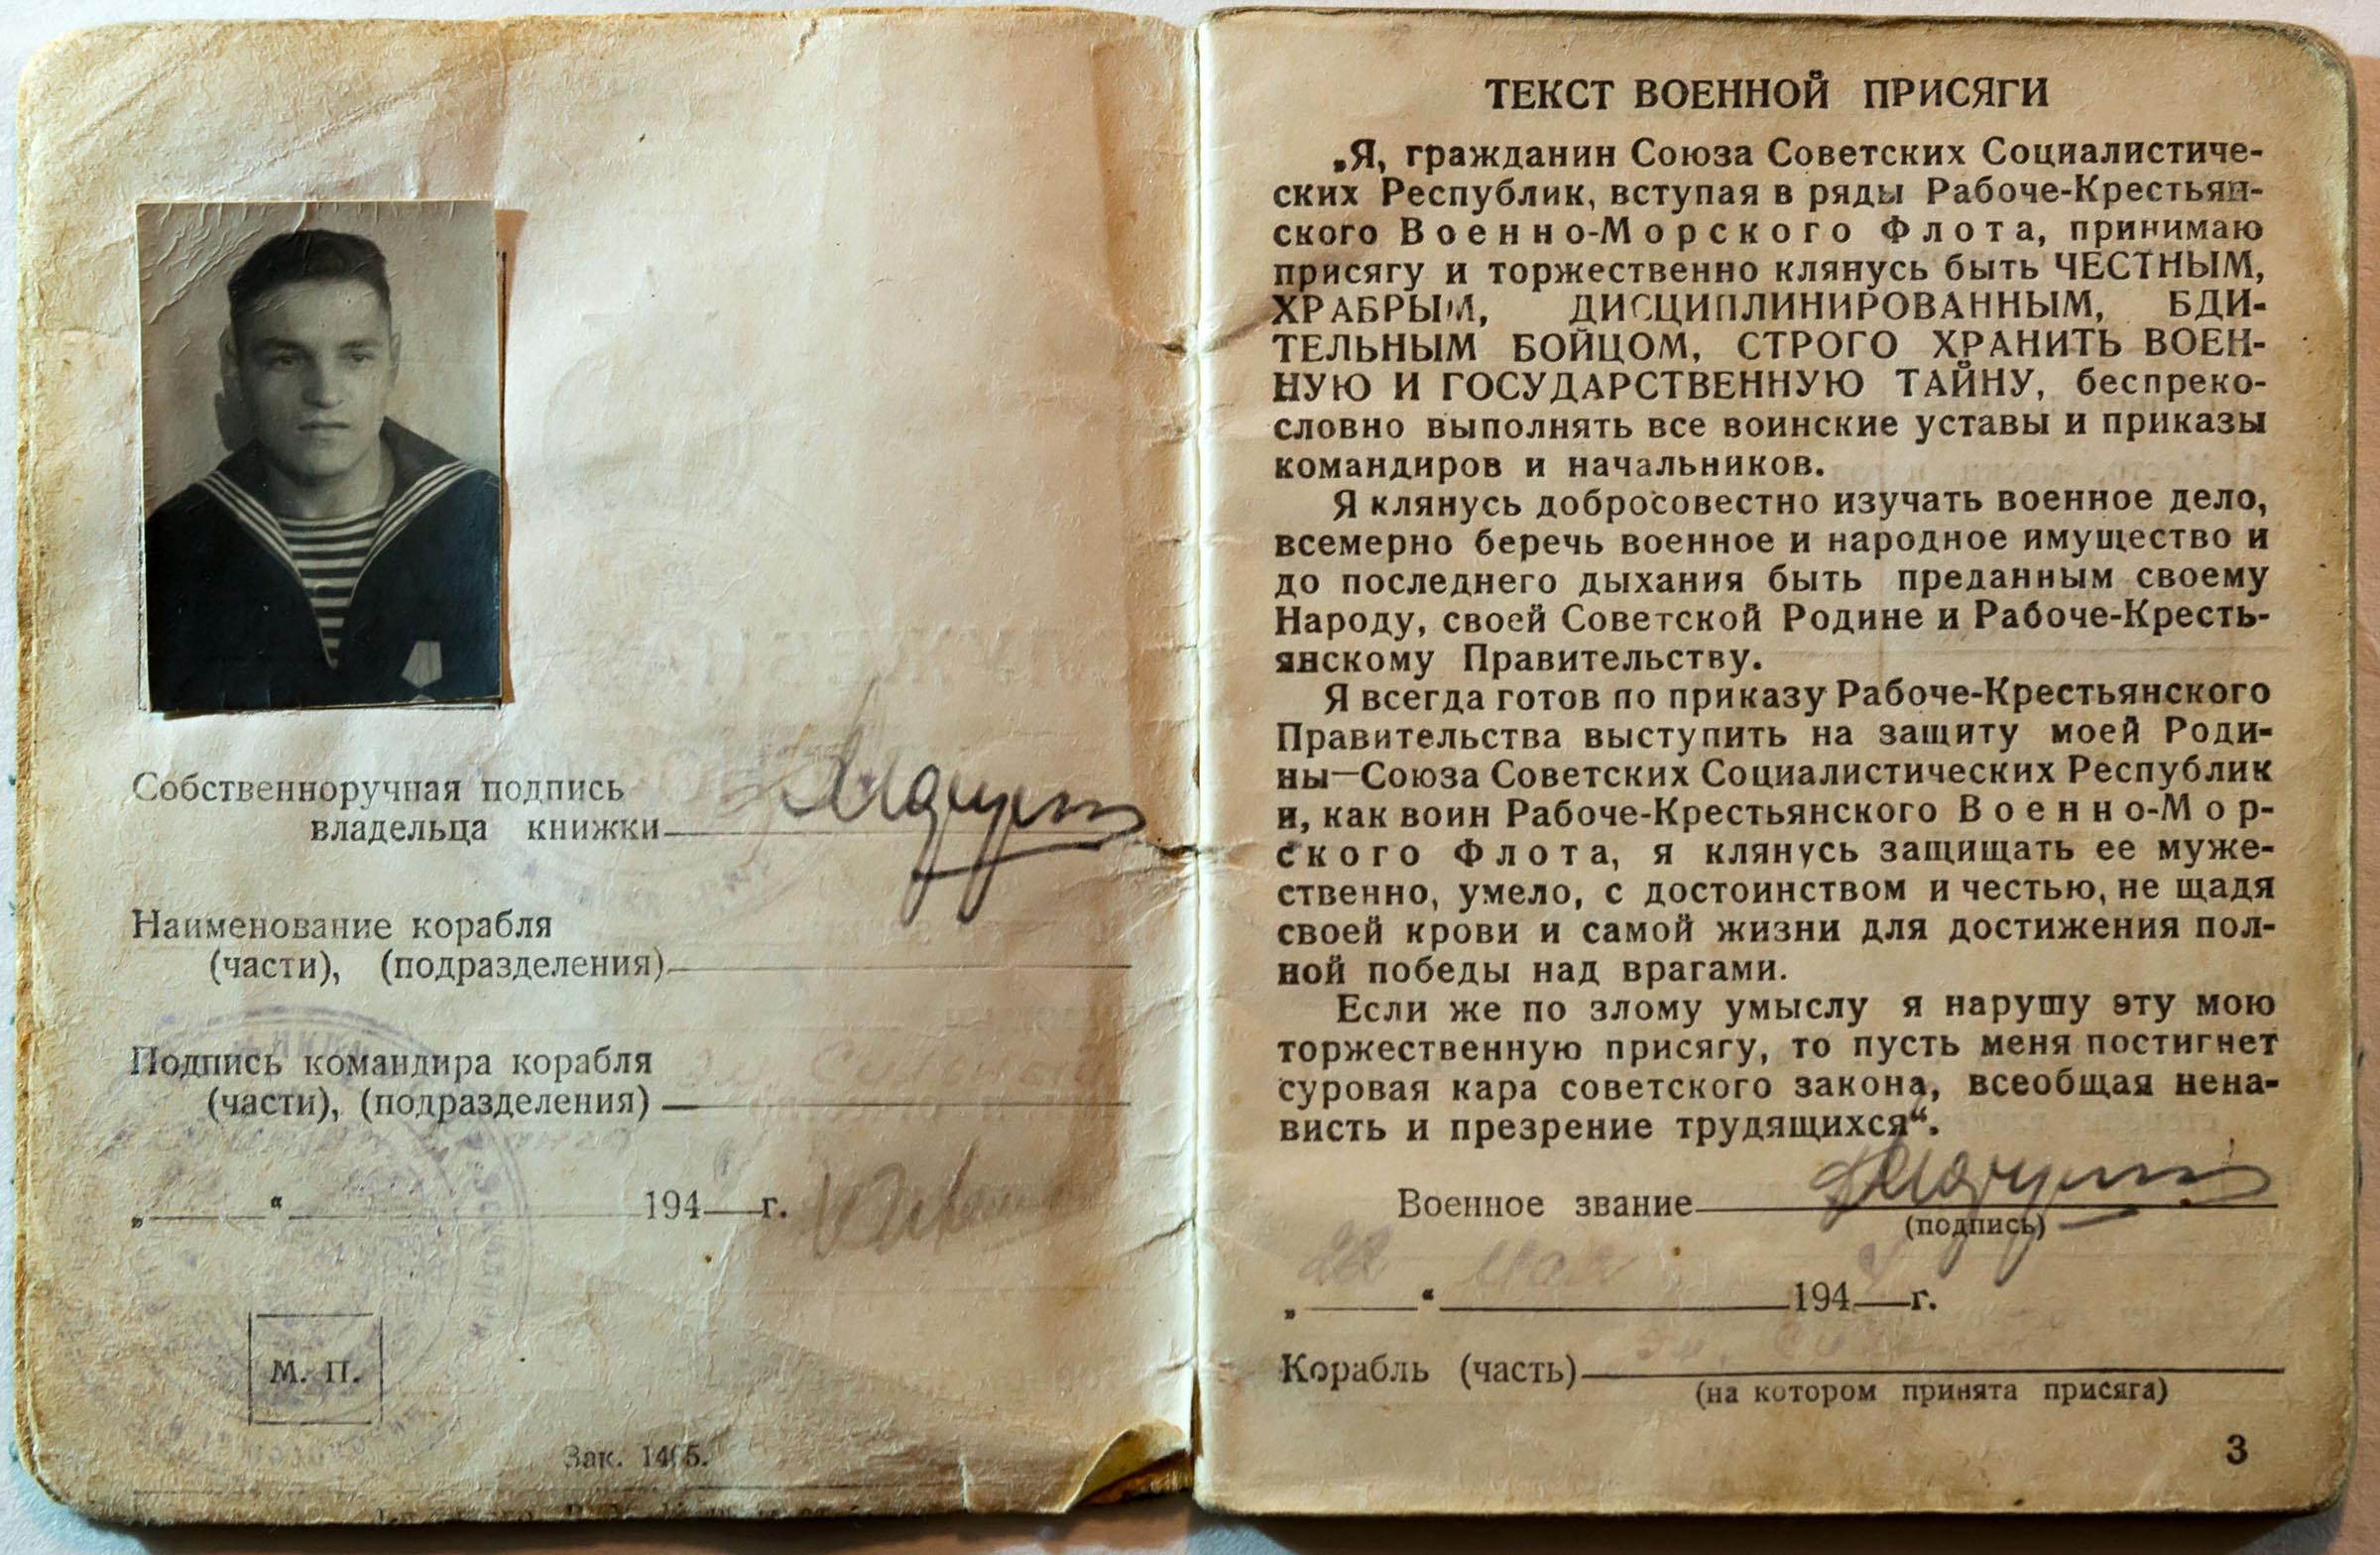 Собственноручная подпись
владельца книжки
Наименование корабля
(части), (подразделения)
Подпись командира корабля
(части), (подразделения)
„ “ 194 г.
М. П.
Зак.
ТЕКСТ ВОЕННОЙ ПРИСЯГИ
„Я, гражданин Союза Советских Социалистиче-
ских Республик, вступая в ряды Рабоче-Крестьян-
ского Военно-Морского Флота, принимаю
присягу и торжественно клянусь быть ЧЕСТНЫМ,
ХРАБРЫМ, ДИСЦИПЛИНИРОВАННЫМ, БДИ-
ТЕЛЬНЫМ БОЙЦОМ, СТРОГО ХРАНИТЬ ВОЕН-
НУЮ И ГОСУДАРСТВЕННУЮ ТАЙНУ, беспреко-
словно выполнять все воинские уставы и приказы
командиров и начальников.
Я клянусь добросовестно изучать военное дело,
всемерно беречь военное и народное имущество и
до последнего дыхания быть преданным своему
Народу, своей Советской Родине и Рабоче-Кресть-
янскому Правительству.
Я всегда готов по приказу Рабоче-Крестьянского
Правительства выступить на защиту моей Роди-
ны—Союза Советских Социалистических Республик
и, как воин Рабоче-Крестьянского Военно-Мор-
ского Флота, я клянусь защищать ее муже-
ственно, умело, с достоинством и честью, не щадя
своей крови и самой жизни для достижения пол-
ной победы над врагами.
Если же по злому умыслу я нарушу эту мою
торжественную присягу, то пусть меня постигнет
суровая кара советского закона, всеобщая нена-
висть и презрение трудящихся“.
Военное звание
(подпись)
22 мая
„ “ 194 г.
Корабль (часть)
(на котором принята присяга)
3